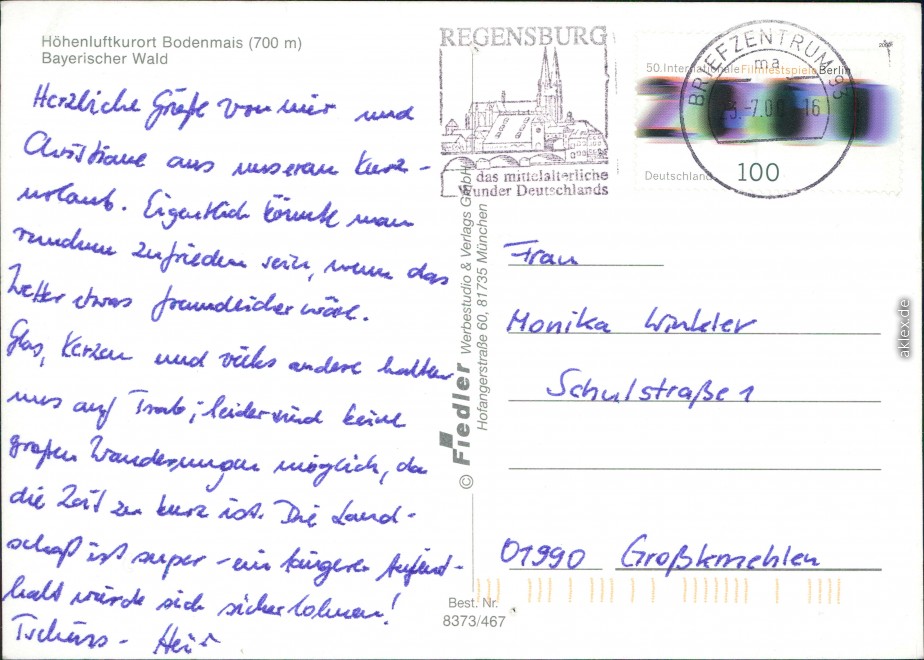 Höhenluftkurort Bodenmais (700 m)
Bayerischer Wald
Herzliche Grüße von mir und
Christiane aus unserem Kurz-
urlaub. Eigentlich könnte man
rundum zufrieden sein, wenn das
Wetter etwas freundlicher wäre.
Glas, Kerzen und vieles andere halten
uns auf Trab; leider sind keine
großen Wanderungen möglich, da
die Zeit zu kurz ist. Die Land-
schaft ist super - ein längerer Aufent-
halt würde sich sicher lohnen!
Tschüss -
REGENSBURG
das mittelalterliche
Wunder Deutschlands
50. Internationale Filmfestspiele Berlin
2000
Deutschland
100
BRIEFZENTRUM 93
ma
-7.00-16
© Fiedler Werbestudio & Verlags GmbH
Hofangerstraße 60, 81735 München
Frau
Monika Winkler
Schulstraße 1
01990 Großkmehlen
Best. Nr.
8373/467
aklex.de